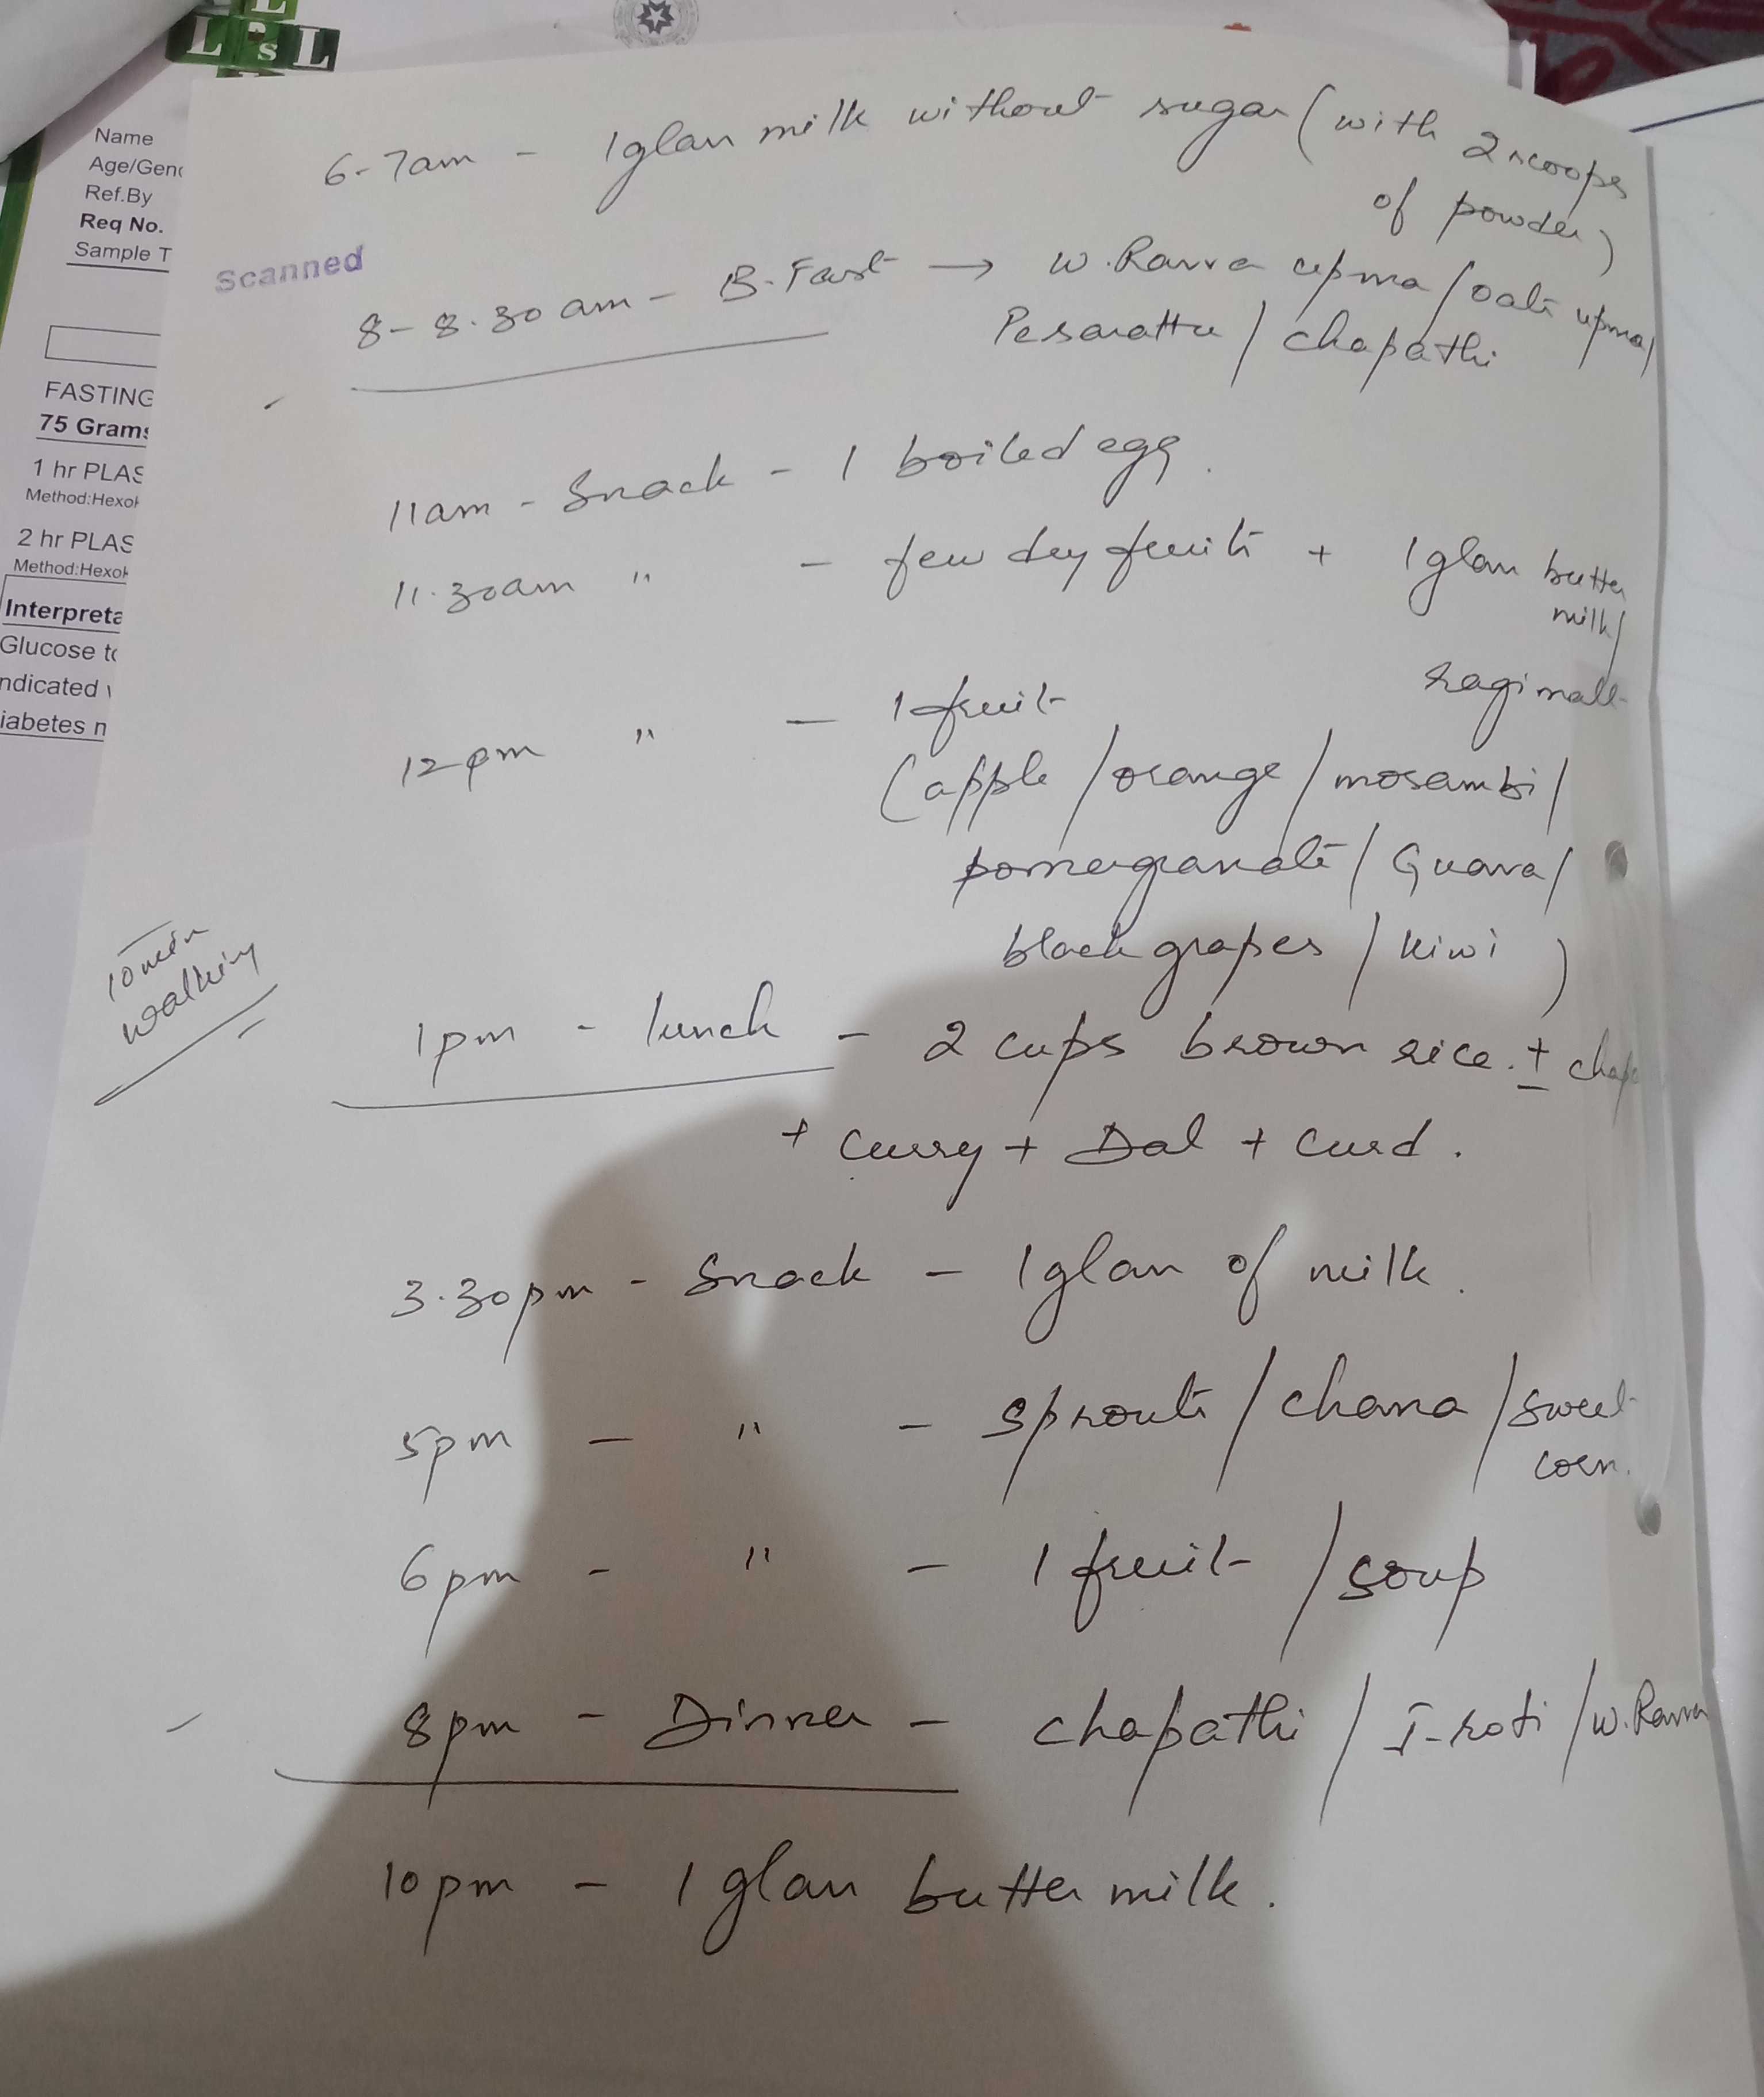 L
L P S L
Name
Age/Gen
Ref.By
Req No.
Sample T
Scanned
FASTING
75 Grams
1 hr PLAS
Method:Hexok
2 hr PLAS
Method:Hexok
Interpreta
Glucose to
ndicated
iabetes m
6-7am - 1 glass milk without sugar (with 2 scoops
of powder)
8-8.30 am - B.Fast → w.Ravva upma / oats upma /
Pesarattu / chapathi
11am - Snack - 1 boiled egg.
11.30am " - few dry fruits + 1 glass butter
milk /
ragi malt
12pm " - 1 fruit
(apple / orange / mosambi /
pomegranate / Guava /
black grapes / kiwi )
10 min
walking
1pm - lunch - 2 cups brown rice. ± chap
+ Curry + Dal + Curd.
3.30pm - Snack - 1 glass of milk.
5pm - " - Sprouts / chana / sweet
corn.
6pm - " - 1 fruit / soup
8pm - Dinner - chapathi / J-roti / w.Ravva
10pm - 1 glass butter milk.